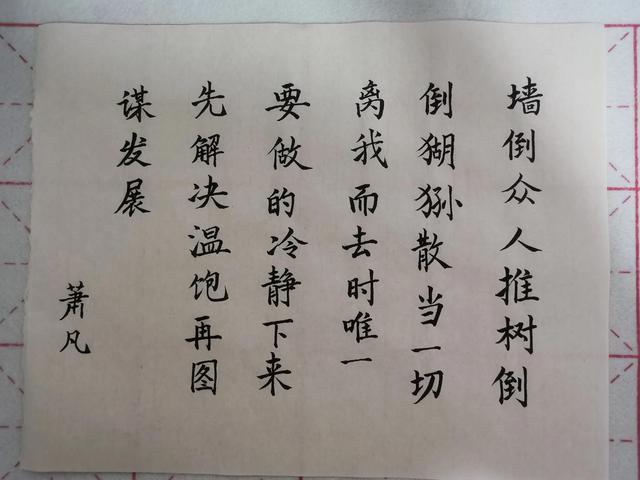 墙倒众人推树倒
倒猢狲散当一切
离我而去时唯一
要做的冷静下来
先解决温饱再图
谋发展
萧凡